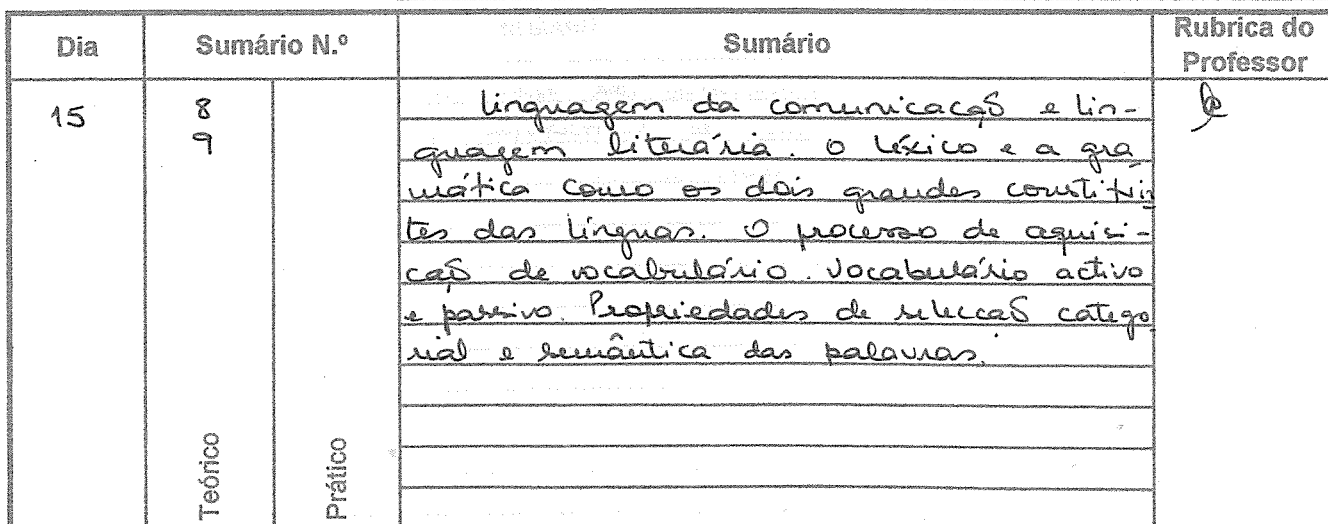 Dia Sumário N.º Sumário Rubrica do Professor
15 8 Linguagem da comunicação e lin-
9 guagem literária. O léxico e a gra
mática como os dois grandes constituin
tes das línguas. O processo de aquisi-
ção de vocabulário. Vocabulário activo
e passivo. Propriedades de selecção catego
rial e semântica das palavras.
Teórico
Prático